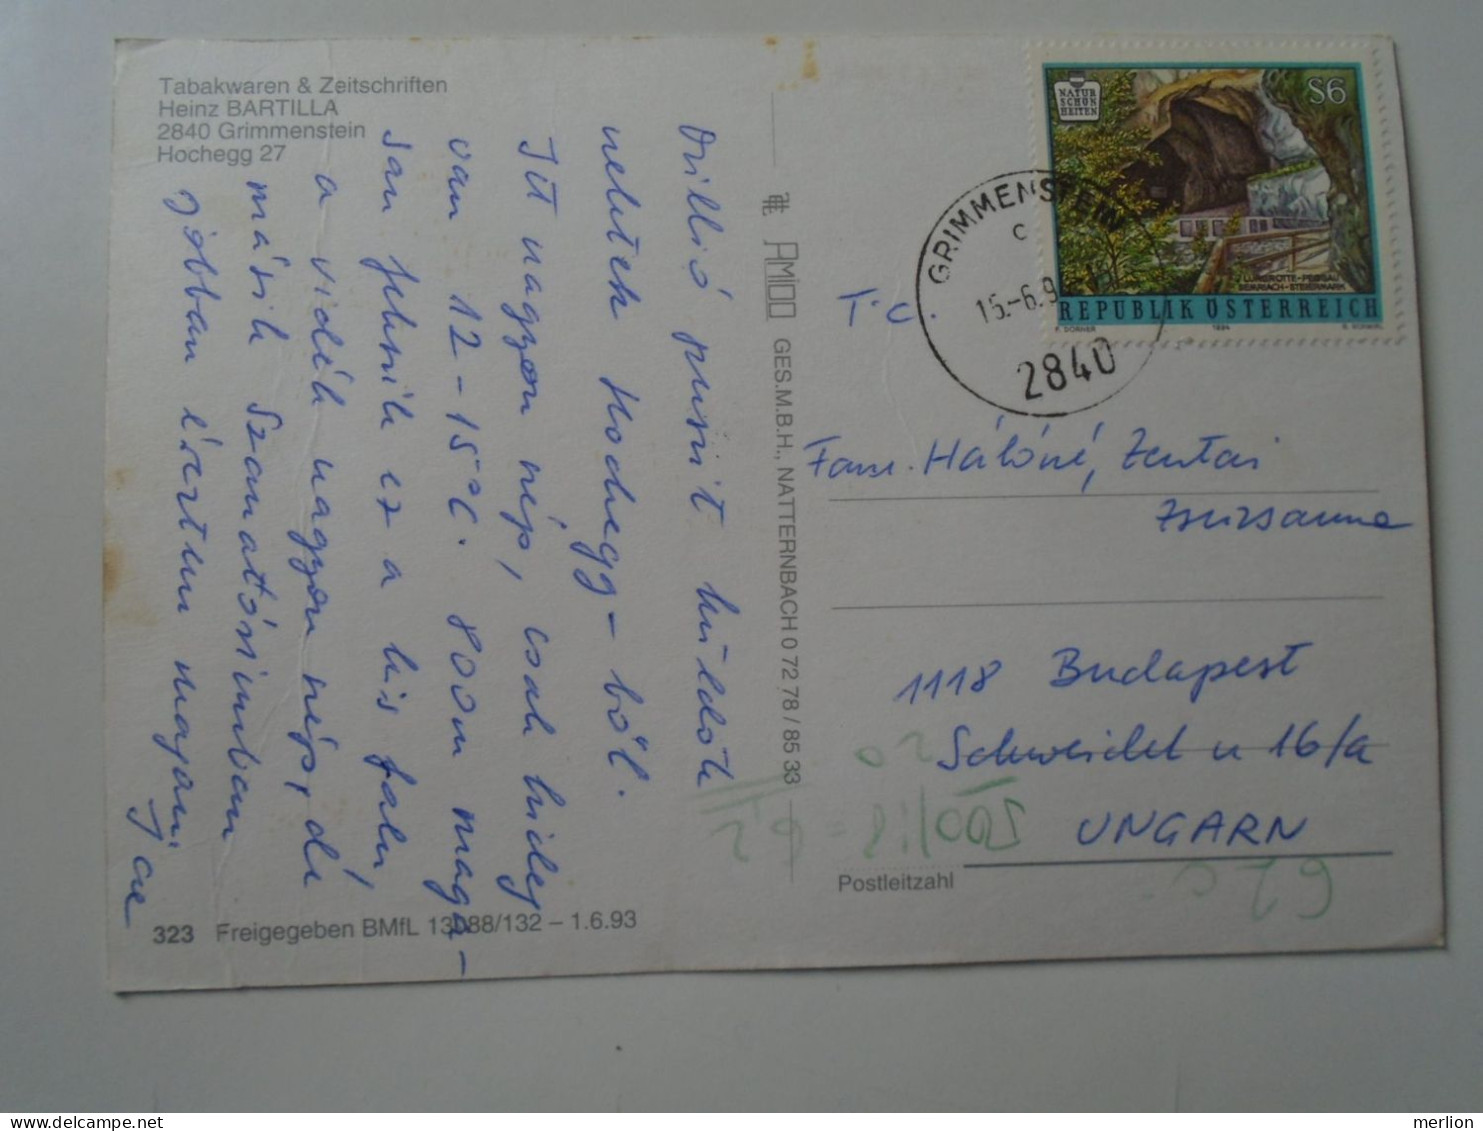 Tabakwaren & Zeitschriften
Heinz BARTILLA
2840 Grimmenstein
Hochegg 27
Millió puszit küldök
nektek Hochegg-ből.
Itt nagyon szép, csak hideg
van 12-15°C. 800m maga-
san fekszik ez a kis falu,
a vidék nagyon szép, de
másik szanatóriumban
jobban éreztem magam
323 Freigegeben BMfL 13088/132 – 1.6.93
AMIDO GES.M.B.H., NATTERNBACH 0 72 78 / 85 33
NATUR
SCHÖN
HEITEN
S6
LURGROTTE-PEGGAU
SEMRIACH-STEIERMARK
REPUBLIK ÖSTERREICH
1994
GRIMMENSTEIN
c
15.-6.9
2840
Fam. Hálóné, Zentai
Zsuzsanna
1118 Budapest
Schweidel u 16/a
UNGARN
Postleitzahl